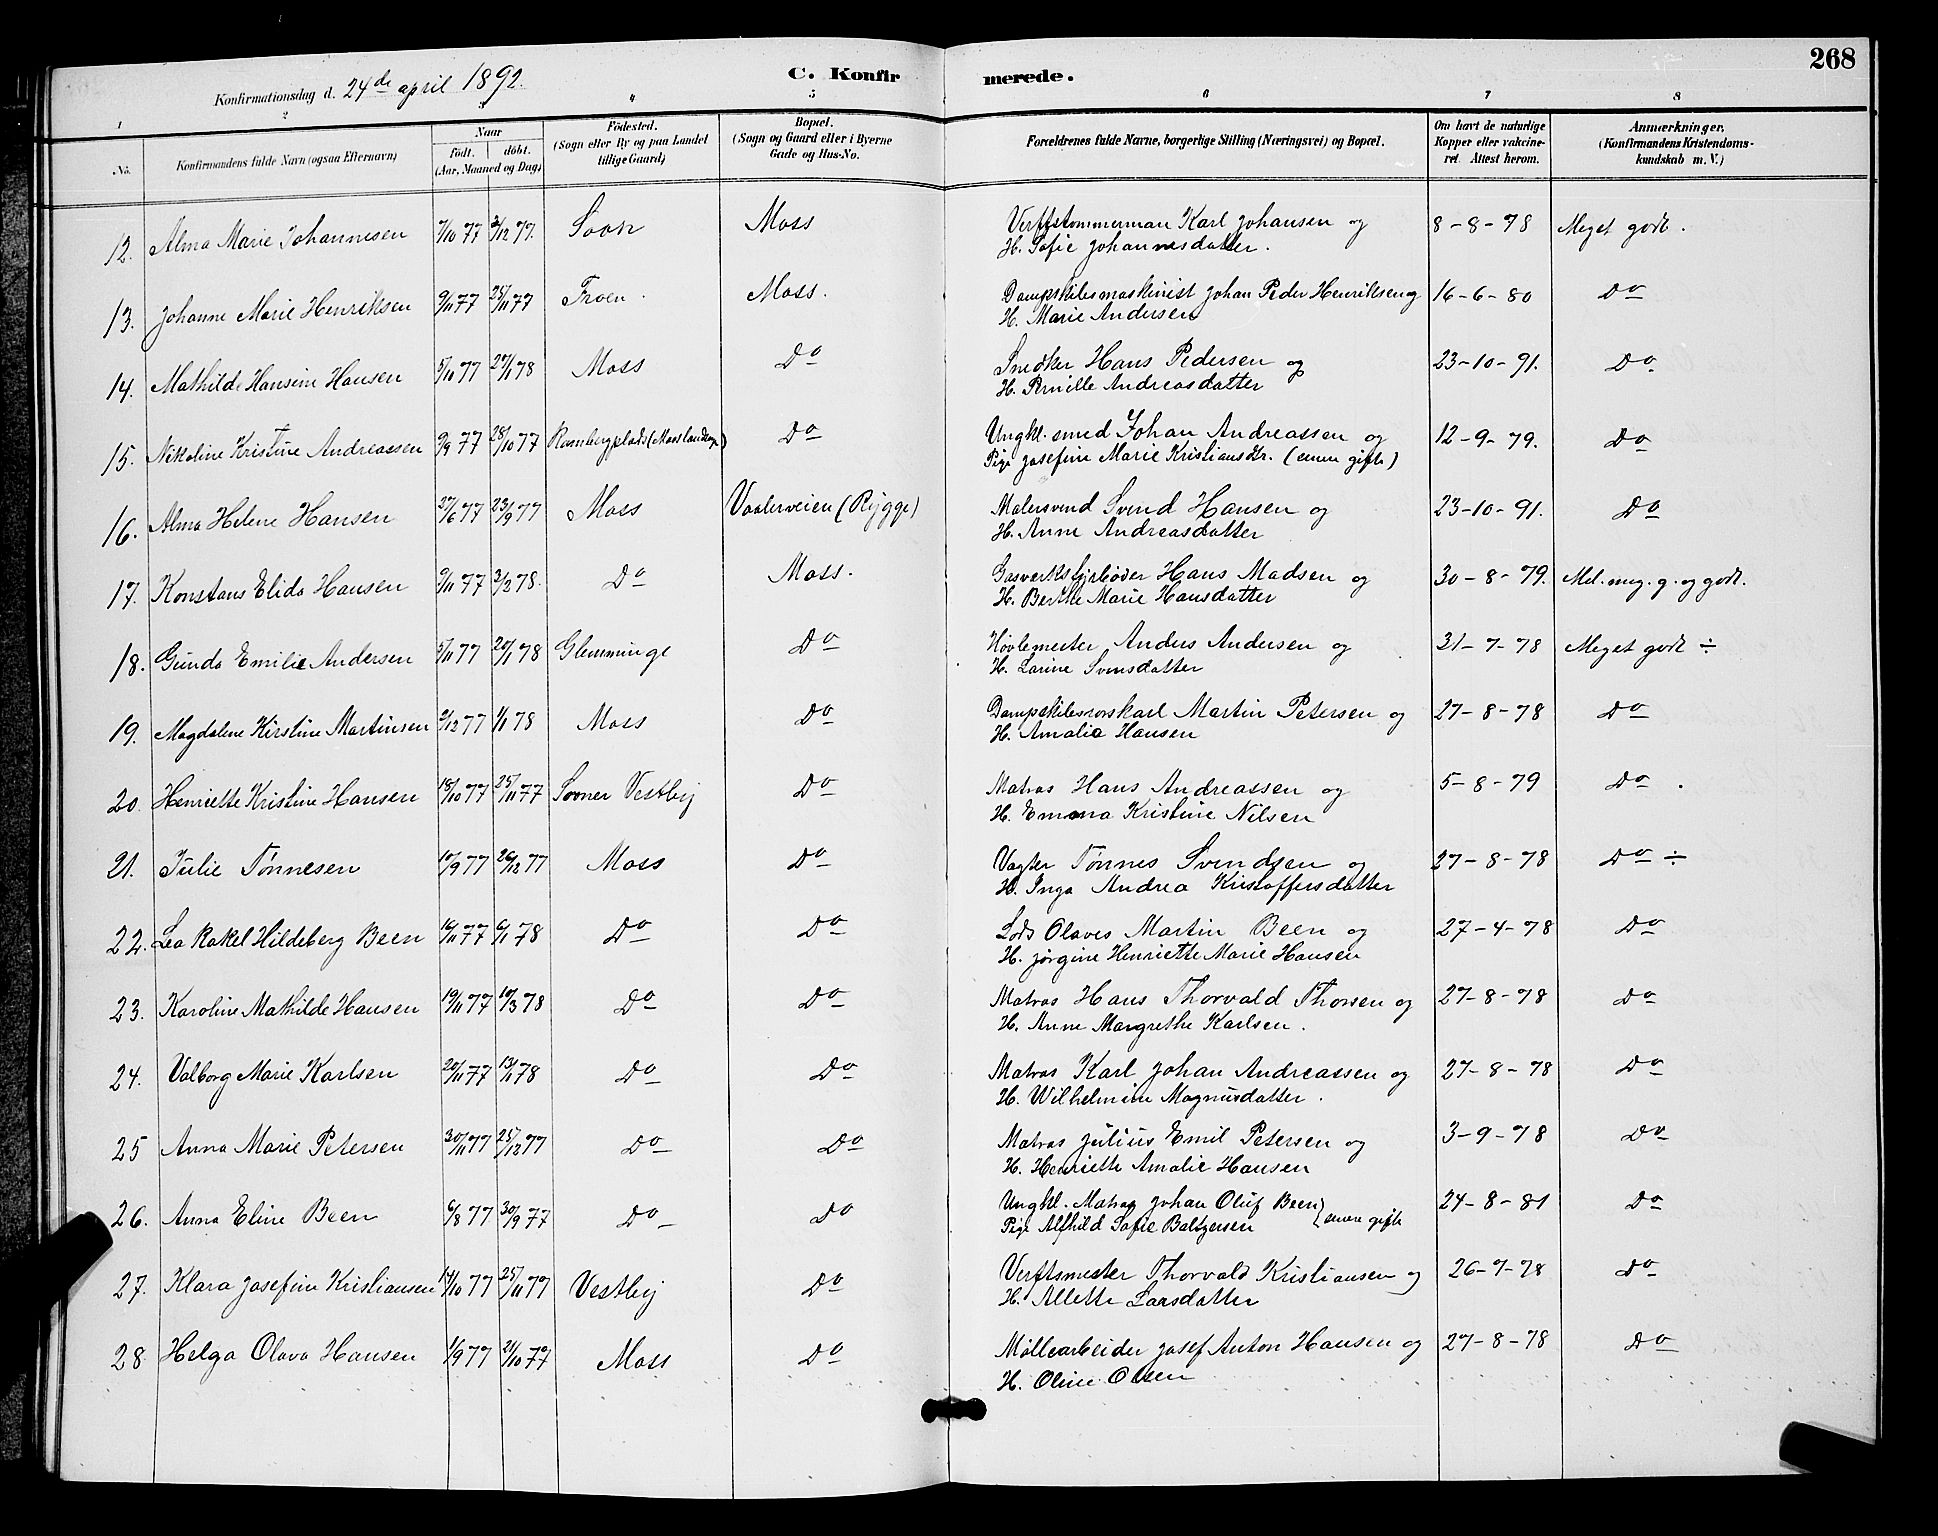 268
C. Konfirmerede.
Konfirmationsdag d. 24de april 1892.
1 2 3 4 5 6 7 8
No. Konfirmandens fulde Navn (ogsaa Efternavn) Naar födt. döbt. (Aar, Maaned og Dag) Födested. (Sogn eller By og paa Landet tillige Gaard) Bopæl. (Sogn og Gaard eller i Byerne Gade og Hus-No. Forældrenes fulde Navne, borgerlige Stilling (Næringsvei) og Bopæl. Om havt de naturlige Kopper eller vakcineret. Attest herom. Anmærkninger. (Konfirmandens Kristendomskundskab m. V.)
12. Alma Marie Johannesen 7/10 77 2/12 77. Soon Moss Verftstømmerman Karl Johansen og 8-8-78 Meget godt.
H. Sofie Johannesdatter.
13. Johanne Marie Henriksen 9/11 77 25/11 77 Froen. Moss. Dampskibsmaskinist Johan Peder Henriksen og 16-6-80 Do
H. Marie Andersen
14. Mathilde Hansine Hansen 5/10 77 27/1 78 Moss Do Snedker Hans Pedersen og 23-10-91. Do
H. Pernille Andreasdatter
15. Nikoline Kristine Andreassen 9/9 77 28/10 77 (Moss landsogn) Do Ungkl. smed Johan Andreassen og 12-9-79. Do
Pige Josefine Marie Kristiansdr. (senere gifte)
16. Alma Helene Hansen 27/6 77 23/9 77 Moss Vaalerveien (Rygge) Malersvend Svend Hansen og 23-10-91. Do
H. Anne Andreasdatter
17. Konstans Elida Hansen 9/11 77 3/2 78. Do Moss. Gasverksfyrbøder Hans Madsen og 30-8-79. Mel. meg. g. og godt.
H. Berthe Marie Hansdatter
18. Gunda Emilie Andersen 5/11 77 20/1 78 Glemminge Do Høvlemester Anders Andersen og 31-7-78 Meget godt ÷
H. Larine Svensdatter
19. Magdalene Kirstine Martinsen 9/12 77 1/1 78 Moss Do Dampskibsrorskarl Martin Petersen og 27-8-78 Do
H. Amalie Hansen
20. Henriette Kristine Hansen 18/10 77 25/11 77 Sooner Vestby Do Matros Hans Andreassen og 5-8-79 Do.
H. Emma Kristine Nilsen
21. Julie Tønnesen 10/9 77 26/12 77 Moss Do Vagter Tønnes Svendsen og 27-8-78 Do ÷
H. Inga Andrea Kristoffersdatter
22. Lea Rakel Hildeberg Been 16/11 77 6/1 78 Do Do Lods Olaves Martin Been og 27-4-78 Do
H. Jørgine Henriette Marie Hansen
23. Karoline Mathilde Hansen 19/11 77 10/3 78 Do Do Matros Hans Thorvald Thorsen og 27-8-78 Do
H. Anne Margrethe Karlsen.
24. Valborg Marie Karlsen 20/11 77 13/1 78 Do Do Matros Karl Johan Andreassen og 27-8-78 Do
H. Wilhelmine Magnusdatter.
25 Anna Marie Petersen 30/11 77 25/12 77 Do Do Matros Julius Emil Petersen og 3-9-78 Do
H. Henriette Amalie Hansen
26. Anna Eline Been 6/8 77 30/9 77 Do Do Ungkl. Matros Johan Oluf Been 24-8-81 Do
Pige Alfhild Sofie Baltzersen } senere gifte
27. Klara Josefine Kristiansen 14/10 77 25/11 77 Vestby Do Verftsmester Thorvald Kristiansen og 26-7-78 Do
H. Allette Larsdatter
28. Helga Olava Hansen 1/9 77 21/10 77 Moss Do Møllearbeider Josef Anton Hansen og 27-8-78 Do
H. Oline Olsen